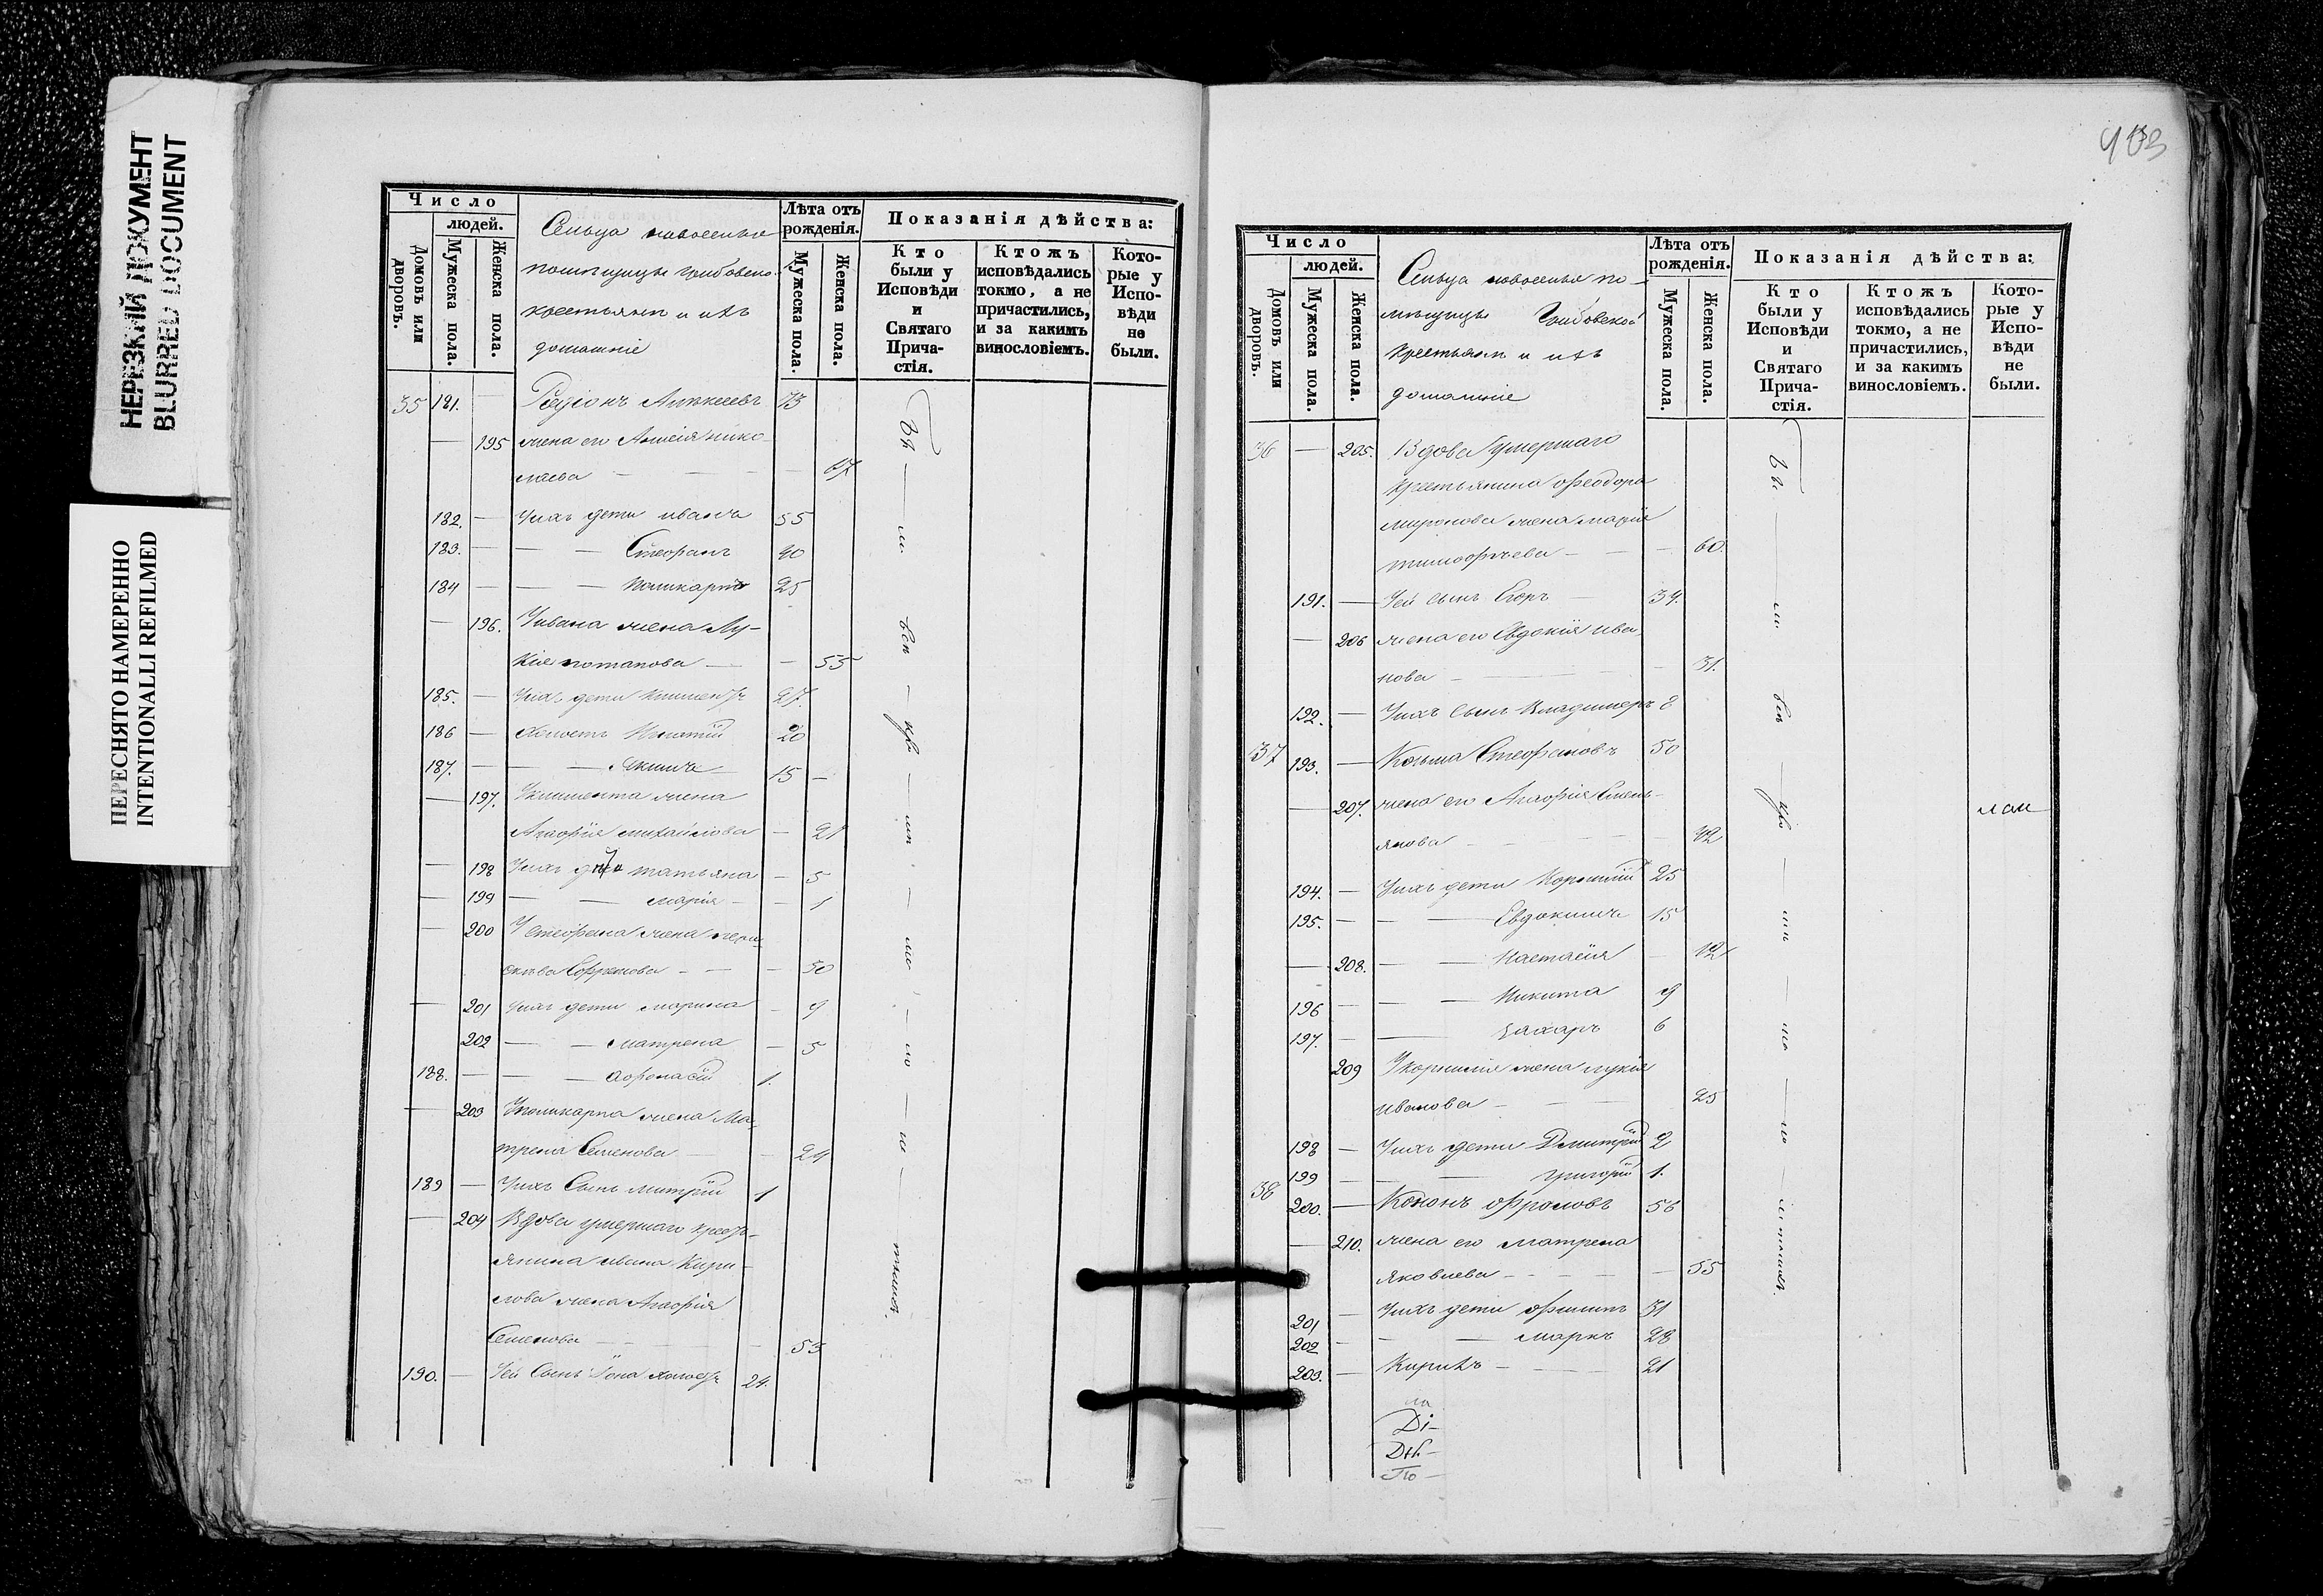 НЕРЕЗКИЙ ДОКУМЕНТ
BLURRED DOCUMENT
ПЕРЕСНЯТО НАМЕРЕННО
INTENTIONALLI REFILMED
Число
людей.
Домовъ или дворовъ.
Мужеска пола.
Женска пола.
Сельца
помещицы Грибовской
крестьяне и ихъ
домашніе
Лѣта отъ рожденія.
Мужеска пола.
Женска пола.
Показанія дѣйства:
Кто были у Исповѣди и Святаго Прича-стія.
Ктожъ исповѣдались токмо, а не причастились, и за какимъ винословіемъ.
Кото-рые у Испо-вѣди не были.
35 181. — Родіонъ Алексеевъ 73
— 195 жена его Анисія Нико
лаева — — — 67
182. — У ихъ дети Иванъ 55
183. — — — Стефанъ 40
184 — — — Поликарпъ 25
— 196. У Ивана жена Лу-
кія Потапова — — 55
185. — У ихъ дети Климентъ 27.
186 — Холостъ Игнатій 20
187. — — — Акимъ 15 —
— 197. У Климента жена
Агафія Михайлова — 21
— 198 У ихъ дети Татьяна — 5
— 199 — — Марія — — 1
— 200 У Стефана жена
Софронова — — — 30
— 201 У ихъ дети Марина — 9
202 — — Матрена — 5
188. — — — Афонасій 1.
— 203 У Поликарпа жена Ма-
трена Семенова — — 24
189 — У ихъ Сынъ Митрій 1
— 204 Вдова умершаго крестъ-
янина Ивана Кири-
лова жена Агафія
Семенова — — — 53
190. — У ей Сынъ Іона холостъ 24.
403
Число
людей.
Домовъ или дворовъ.
Мужеска пола.
Женска пола.
Сельца по-
мещицы Грибовской
крестьяне и ихъ
домашніе
Лѣта отъ рожденія.
Мужеска пола.
Женска пола.
Показанія дѣйства:
Кто были у Исповѣди и Святаго Прича-стія.
Ктожъ исповѣдались токмо, а не причастились, и за какимъ винословіемъ.
Кото-рые у Испо-вѣди не были.
36 — 205. Вдова умершаго
крестьянина Феодора
Миронова жена Марія
Тимофѣева — — — 60.
191. — У ей сынъ Егоръ — 34.
— 206 жена его Евдокія Ива-
нова — — — 31.
192. — У ихъ Сынъ Владимеръ 8
37 193. — Козьма Стефановъ 50
— 207. жена его Агафія Емель-
янова — — — 42
194. — У ихъ дети Корнилій 25
195. — — — Евдокимъ 15
— 208. — — Настасія — 12
196 — — — Никита 9
197. — — Захаръ 6
209 У Корнилія жена Лукія
Иванова — — — 25
198 — У ихъ дети Дмитрій 2
199 — — — Григорій 1.
38 200. — Кононъ Фроловъ 56
— 210. жена его Матрена
Яковлева — — — — 55
201 — У ихъ дети Филипъ 31
202 — — — Маркъ 28
203. — Кирилъ — — 21